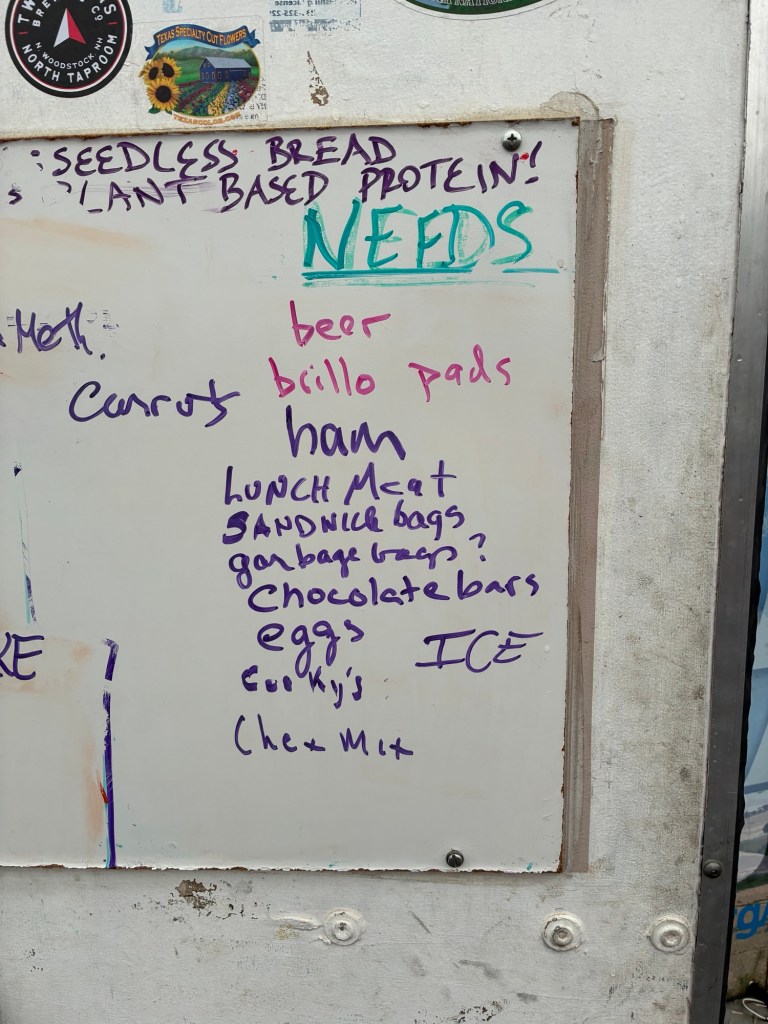 NORTH TAPROOM
N. WOODSTOCK, NH
TEXAS SPECIALTY CUT FLOWERS
TEXASCOLOR.COM
SEEDLESS BREAD
PLANT BASED PROTEIN!
NEEDS
Meth.
beer
brillo pads
Carrots
ham
LUNCH Meat
SANDWICH bags
garbage bags?
Chocolate bars
eggs
ICE
KE
Cooky's
Chex Mix